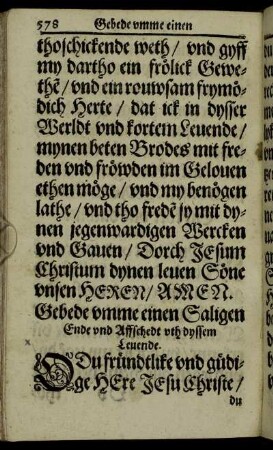 578 Gebede vmme einen
thoschickende weth / vnd gyff
my dartho ein frölick Gewe-
thē / vnd ein rouwsam frymö-
dich Herte / dat ick in dysser
Werldt vnd kortem Leuende /
mynen beten Brodes mit fre-
den vnd fröwden im Gelouen
ethen möge / vnd my benögen
lathe / vnd tho fredē sy mit dy-
nen jegenwardigen Wercken
vnd Gauen / Dorch JEsum
Christum dynen leuen Söne
vnsen HEREN / AMEN.
Gebede vmme einen Saligen
Ende vnd Affschedt vth dyssem
Leuende.
O Du fründtlike vnd güdi-
ge HEre JESu Christe /
du